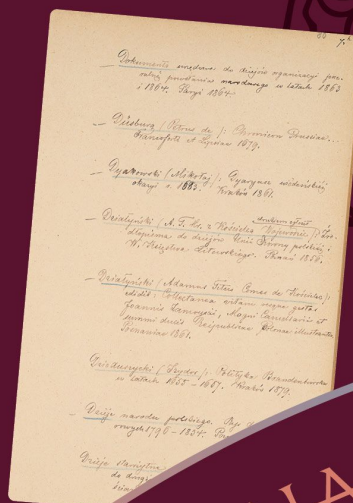 7.
— Dokumenta urzędowe do dziejów organizacyi
powstania narodowego w latach 1863
i 1864. Paryż 1864.
— Düsburg (Petrus de): Chronicon Prussiae...
Francofurti et Lipsiae 1679.
— Dyakowski (Mikołaj): Dyaryusz wideńskiej
okazyi r. 1683. Kraków 1861.
— Działyński (A. T. hr. z Kościelca
Źró-
dłopisma do dziejów Unii Korony polskiej i
W. Księstwa Litewskiego. Poznań 1856.
— Działyński (Adamus Titus Comes de Kościelec)
edidit: Collectanea vitam resque gestas
Joannis Zamoyscii, Magni Cancellarii et
ducis Reipublicae Polonae illustrantia
Posnaniae 1861.
Dzieduszycki (Izydor): Polityka Brandenburska
w latach 1655 – 1657. Kraków 1879.
— Dzieje narodu polskiego.
1796 – 1834.
Dzieje
do
IA